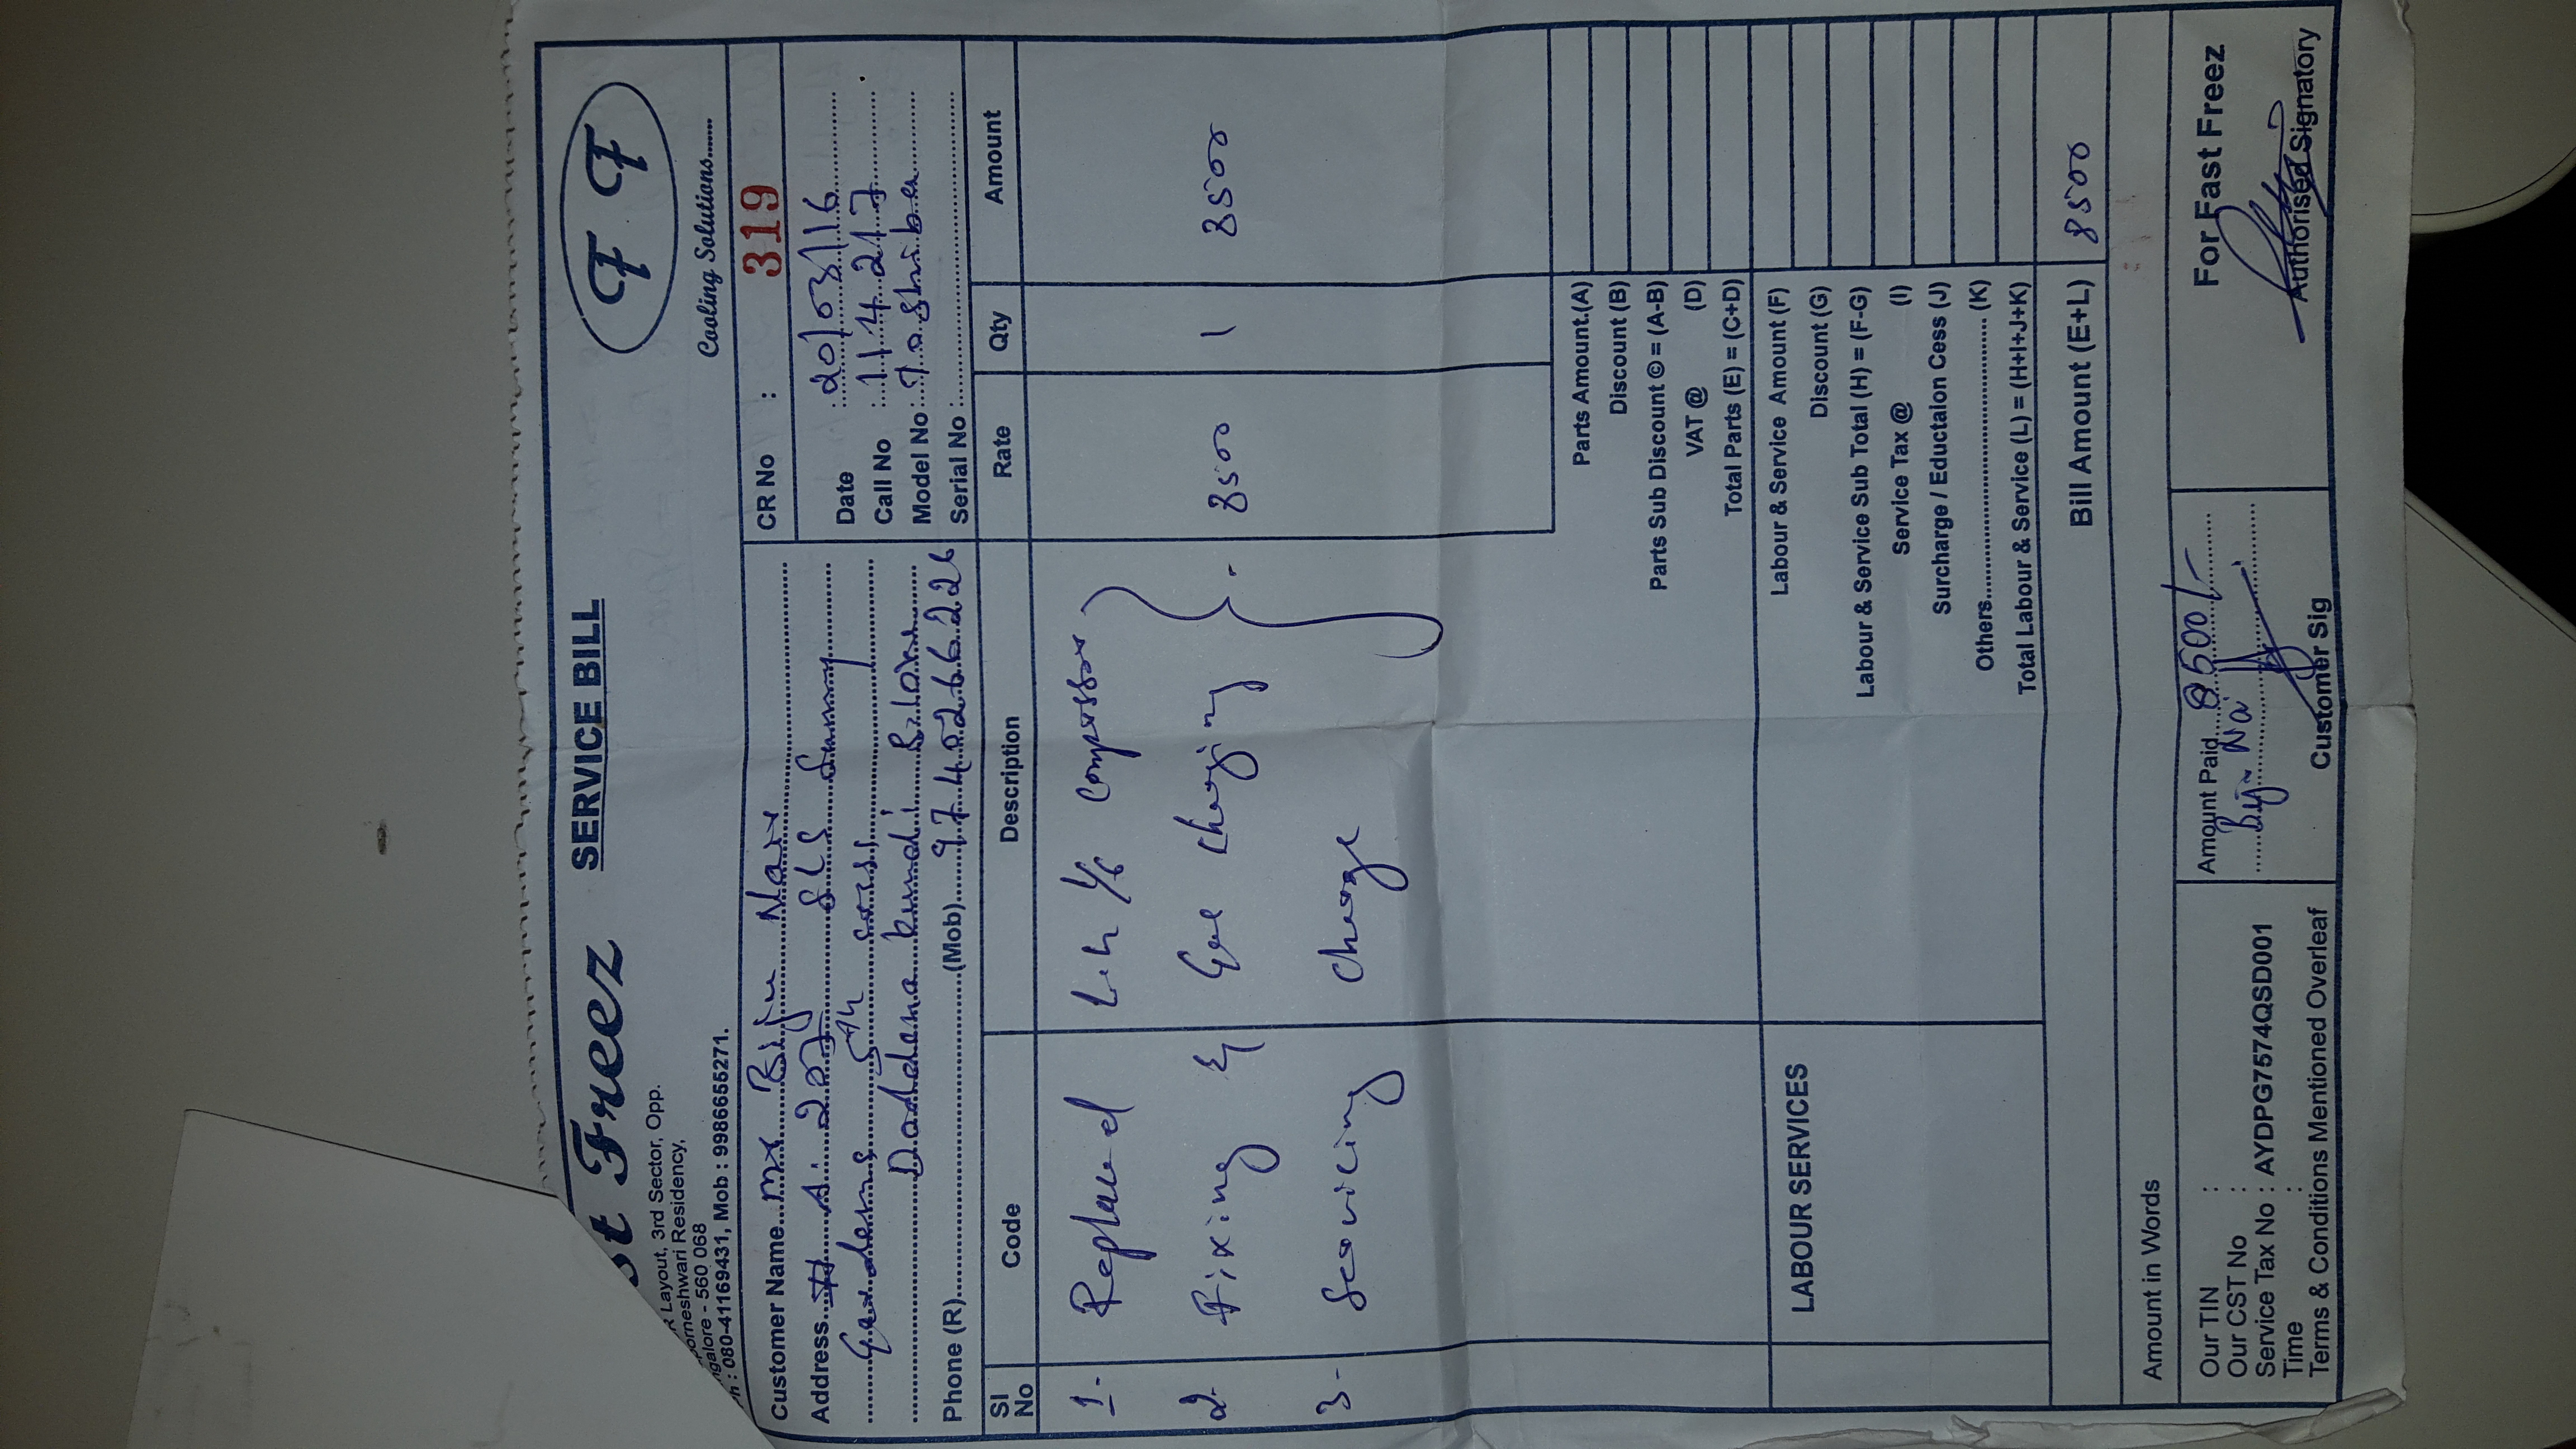 st Freez SERVICE BILL F F
R Layout, 3rd Sector, Opp.
orneshwari Residency,
ngalore - 560 068
h : 080-41169431, Mob : 9986655271. Cooling Solutions......
Customer Name mr Biju Nair
Address # A. 207 SLS Sunny
Gardens 5th cross,
Doddena kundi Blore
Phone (R) (Mob) 9740266226
CR No : 319
Date : 20/03/16
Call No : 114217
Model No : Toshiba
Serial No :
SI No Code Description Rate Qty Amount
1- Replaced compressor
2- Fixing & Gas charging 8500 1 8500
3- Servicing charge
Parts Amount.(A)
Discount (B)
Parts Sub Discount © = (A-B)
VAT @ (D)
Total Parts (E) = (C+D)
LABOUR SERVICES
Labour & Service Amount (F)
Discount (G)
Labour & Service Sub Total (H) = (F-G)
Service Tax @ (I)
Surcharge / Eductaion Cess (J)
Others (K)
Total Labour & Service (L) = (H+I+J+K)
Bill Amount (E+L) 8500
Amount in Words
Our TIN :
Our CST No :
Service Tax No : AYDPG7574QSD001
Time :
Terms & Conditions Mentioned Overleaf
Amount Paid 8500/-
Biju Nai
Customer Sig
For Fast Freez
Authorised Signatory